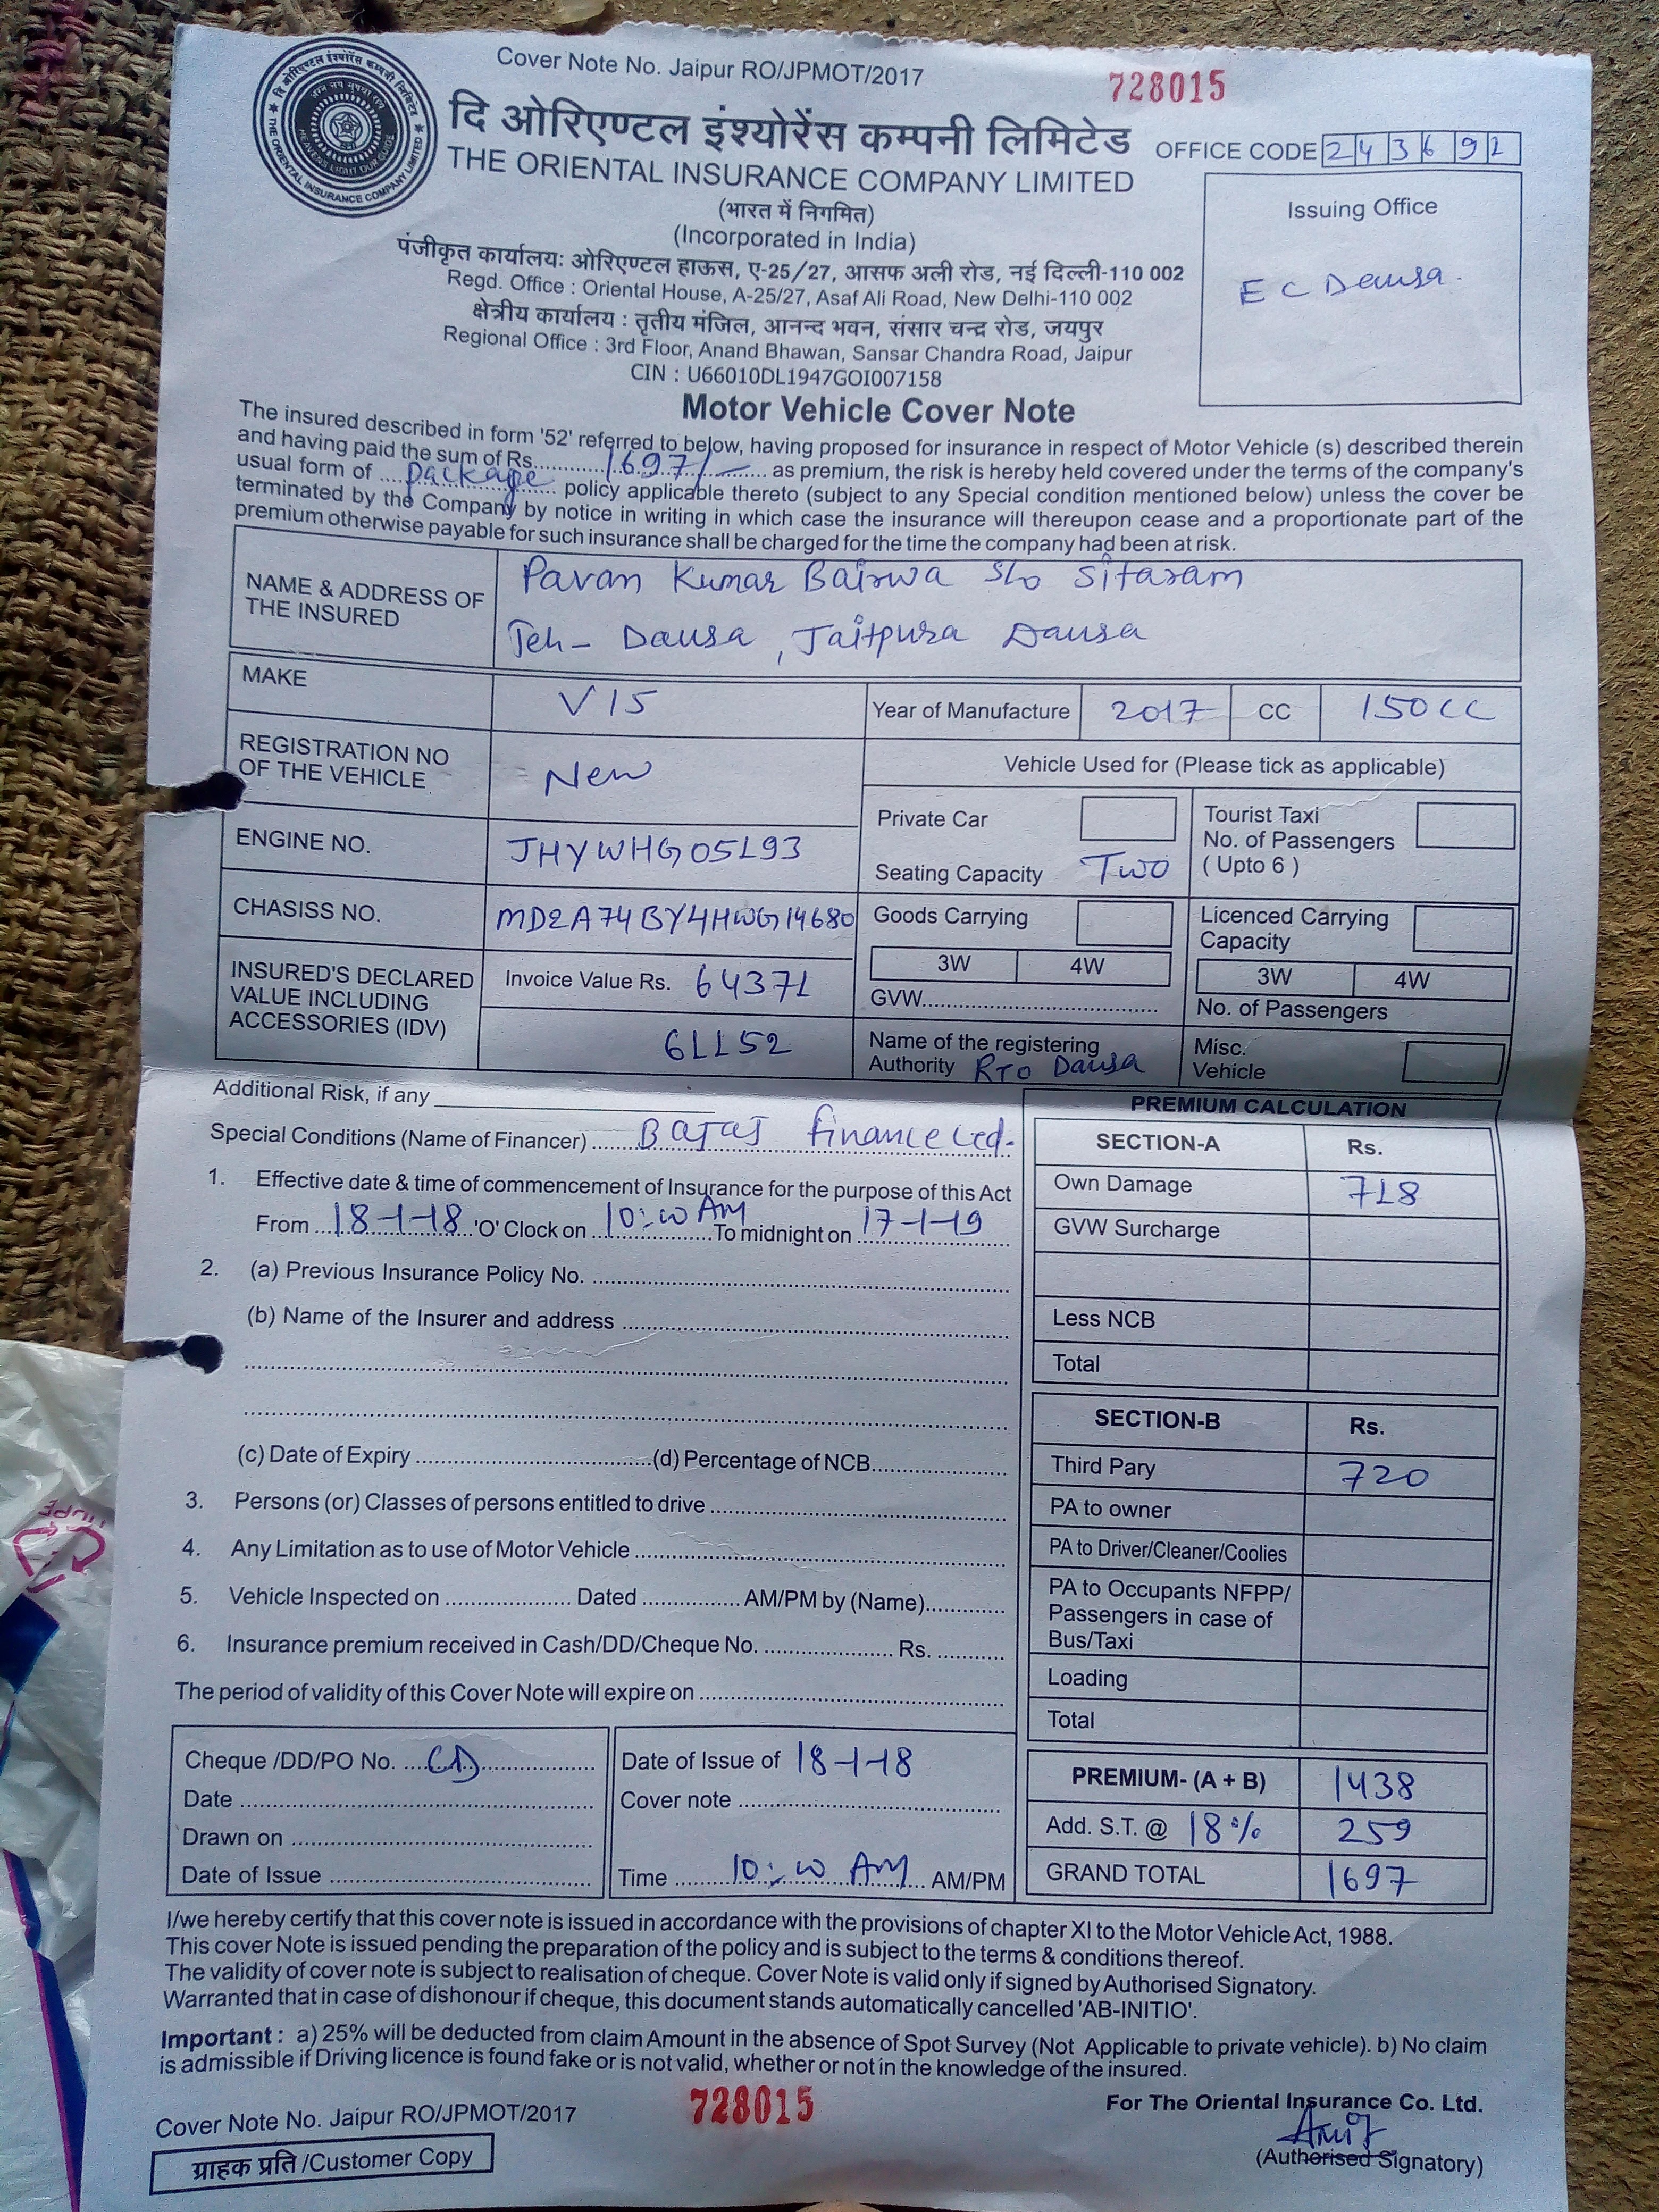 Cover Note No. Jaipur RO/JPMOT/2017 728015
दि ओरिएण्टल इंश्योरेंस कम्पनी लिमिटेड
THE ORIENTAL INSURANCE COMPANY LIMITED
OFFICE CODE 243692
(भारत में निगमित)
(Incorporated in India)
Issuing Office
EC Dausa.
पंजीकृत कार्यालयः ओरिएण्टल हाऊस, ए-25/27, आसफ अली रोड, नई दिल्ली-110 002
Regd. Office : Oriental House, A-25/27, Asaf Ali Road, New Delhi-110 002
क्षेत्रीय कार्यालय : तृतीय मंजिल, आनन्द भवन, संसार चन्द्र रोड, जयपुर
Regional Office : 3rd Floor, Anand Bhawan, Sansar Chandra Road, Jaipur
CIN : U66010DL1947GOI007158
Motor Vehicle Cover Note
The insured described in form '52' referred to below, having proposed for insurance in respect of Motor Vehicle (s) described therein
and having paid the sum of Rs. 1697/- as premium, the risk is hereby held covered under the terms of the company's
usual form of package policy applicable thereto (subject to any Special condition mentioned below) unless the cover be
terminated by the Company by notice in writing in which case the insurance will thereupon cease and a proportionate part of the
premium otherwise payable for such insurance shall be charged for the time the company had been at risk.
NAME & ADDRESS OF THE INSURED
Pavan Kumar Bairwa S/o Sitaram
Teh- Dausa, Jaitpura Dausa
MAKE V15 Year of Manufacture 2017 CC 150CC
REGISTRATION NO OF THE VEHICLE New
Vehicle Used for (Please tick as applicable)
ENGINE NO. JHYWHG05193
Private Car
Seating Capacity Two
Tourist Taxi
No. of Passengers
( Upto 6 )
CHASISS NO. MD2A74BY4HWG14680
Goods Carrying
3W 4W
GVW
Licenced Carrying
Capacity
3W 4W
No. of Passengers
INSURED'S DECLARED VALUE INCLUDING ACCESSORIES (IDV)
Invoice Value Rs. 64371
61152
Name of the registering
Authority RTO Dausa
Misc.
Vehicle
Additional Risk, if any
Special Conditions (Name of Financer) Bajaj finance Ltd.
1. Effective date & time of commencement of Insurance for the purpose of this Act
From 18-1-18 'O' Clock on 10:00 AM To midnight on 17-1-19
2. (a) Previous Insurance Policy No.
(b) Name of the Insurer and address
(c) Date of Expiry (d) Percentage of NCB
3. Persons (or) Classes of persons entitled to drive
4. Any Limitation as to use of Motor Vehicle
5. Vehicle Inspected on Dated AM/PM by (Name)
6. Insurance premium received in Cash/DD/Cheque No. Rs.
The period of validity of this Cover Note will expire on
Cheque /DD/PO No. CD
Date
Drawn on
Date of Issue
Date of Issue of 18-1-18
Cover note
Time 10:00 AM AM/PM
PREMIUM CALCULATION
SECTION-A Rs.
Own Damage 718
GVW Surcharge
Less NCB
Total
SECTION-B Rs.
Third Pary 720
PA to owner
PA to Driver/Cleaner/Coolies
PA to Occupants NFPP/
Passengers in case of
Bus/Taxi
Loading
Total
PREMIUM- (A + B) 1438
Add. S.T. @ 18% 259
GRAND TOTAL 1697
I/we hereby certify that this cover note is issued in accordance with the provisions of chapter XI to the Motor Vehicle Act, 1988.
This cover Note is issued pending the preparation of the policy and is subject to the terms & conditions thereof.
The validity of cover note is subject to realisation of cheque. Cover Note is valid only if signed by Authorised Signatory.
Warranted that in case of dishonour if cheque, this document stands automatically cancelled 'AB-INITIO'.
Important : a) 25% will be deducted from claim Amount in the absence of Spot Survey (Not Applicable to private vehicle). b) No claim
is admissible if Driving licence is found fake or is not valid, whether or not in the knowledge of the insured.
Cover Note No. Jaipur RO/JPMOT/2017 728015
For The Oriental Insurance Co. Ltd.
(Authorised Signatory)
ग्राहक प्रति /Customer Copy